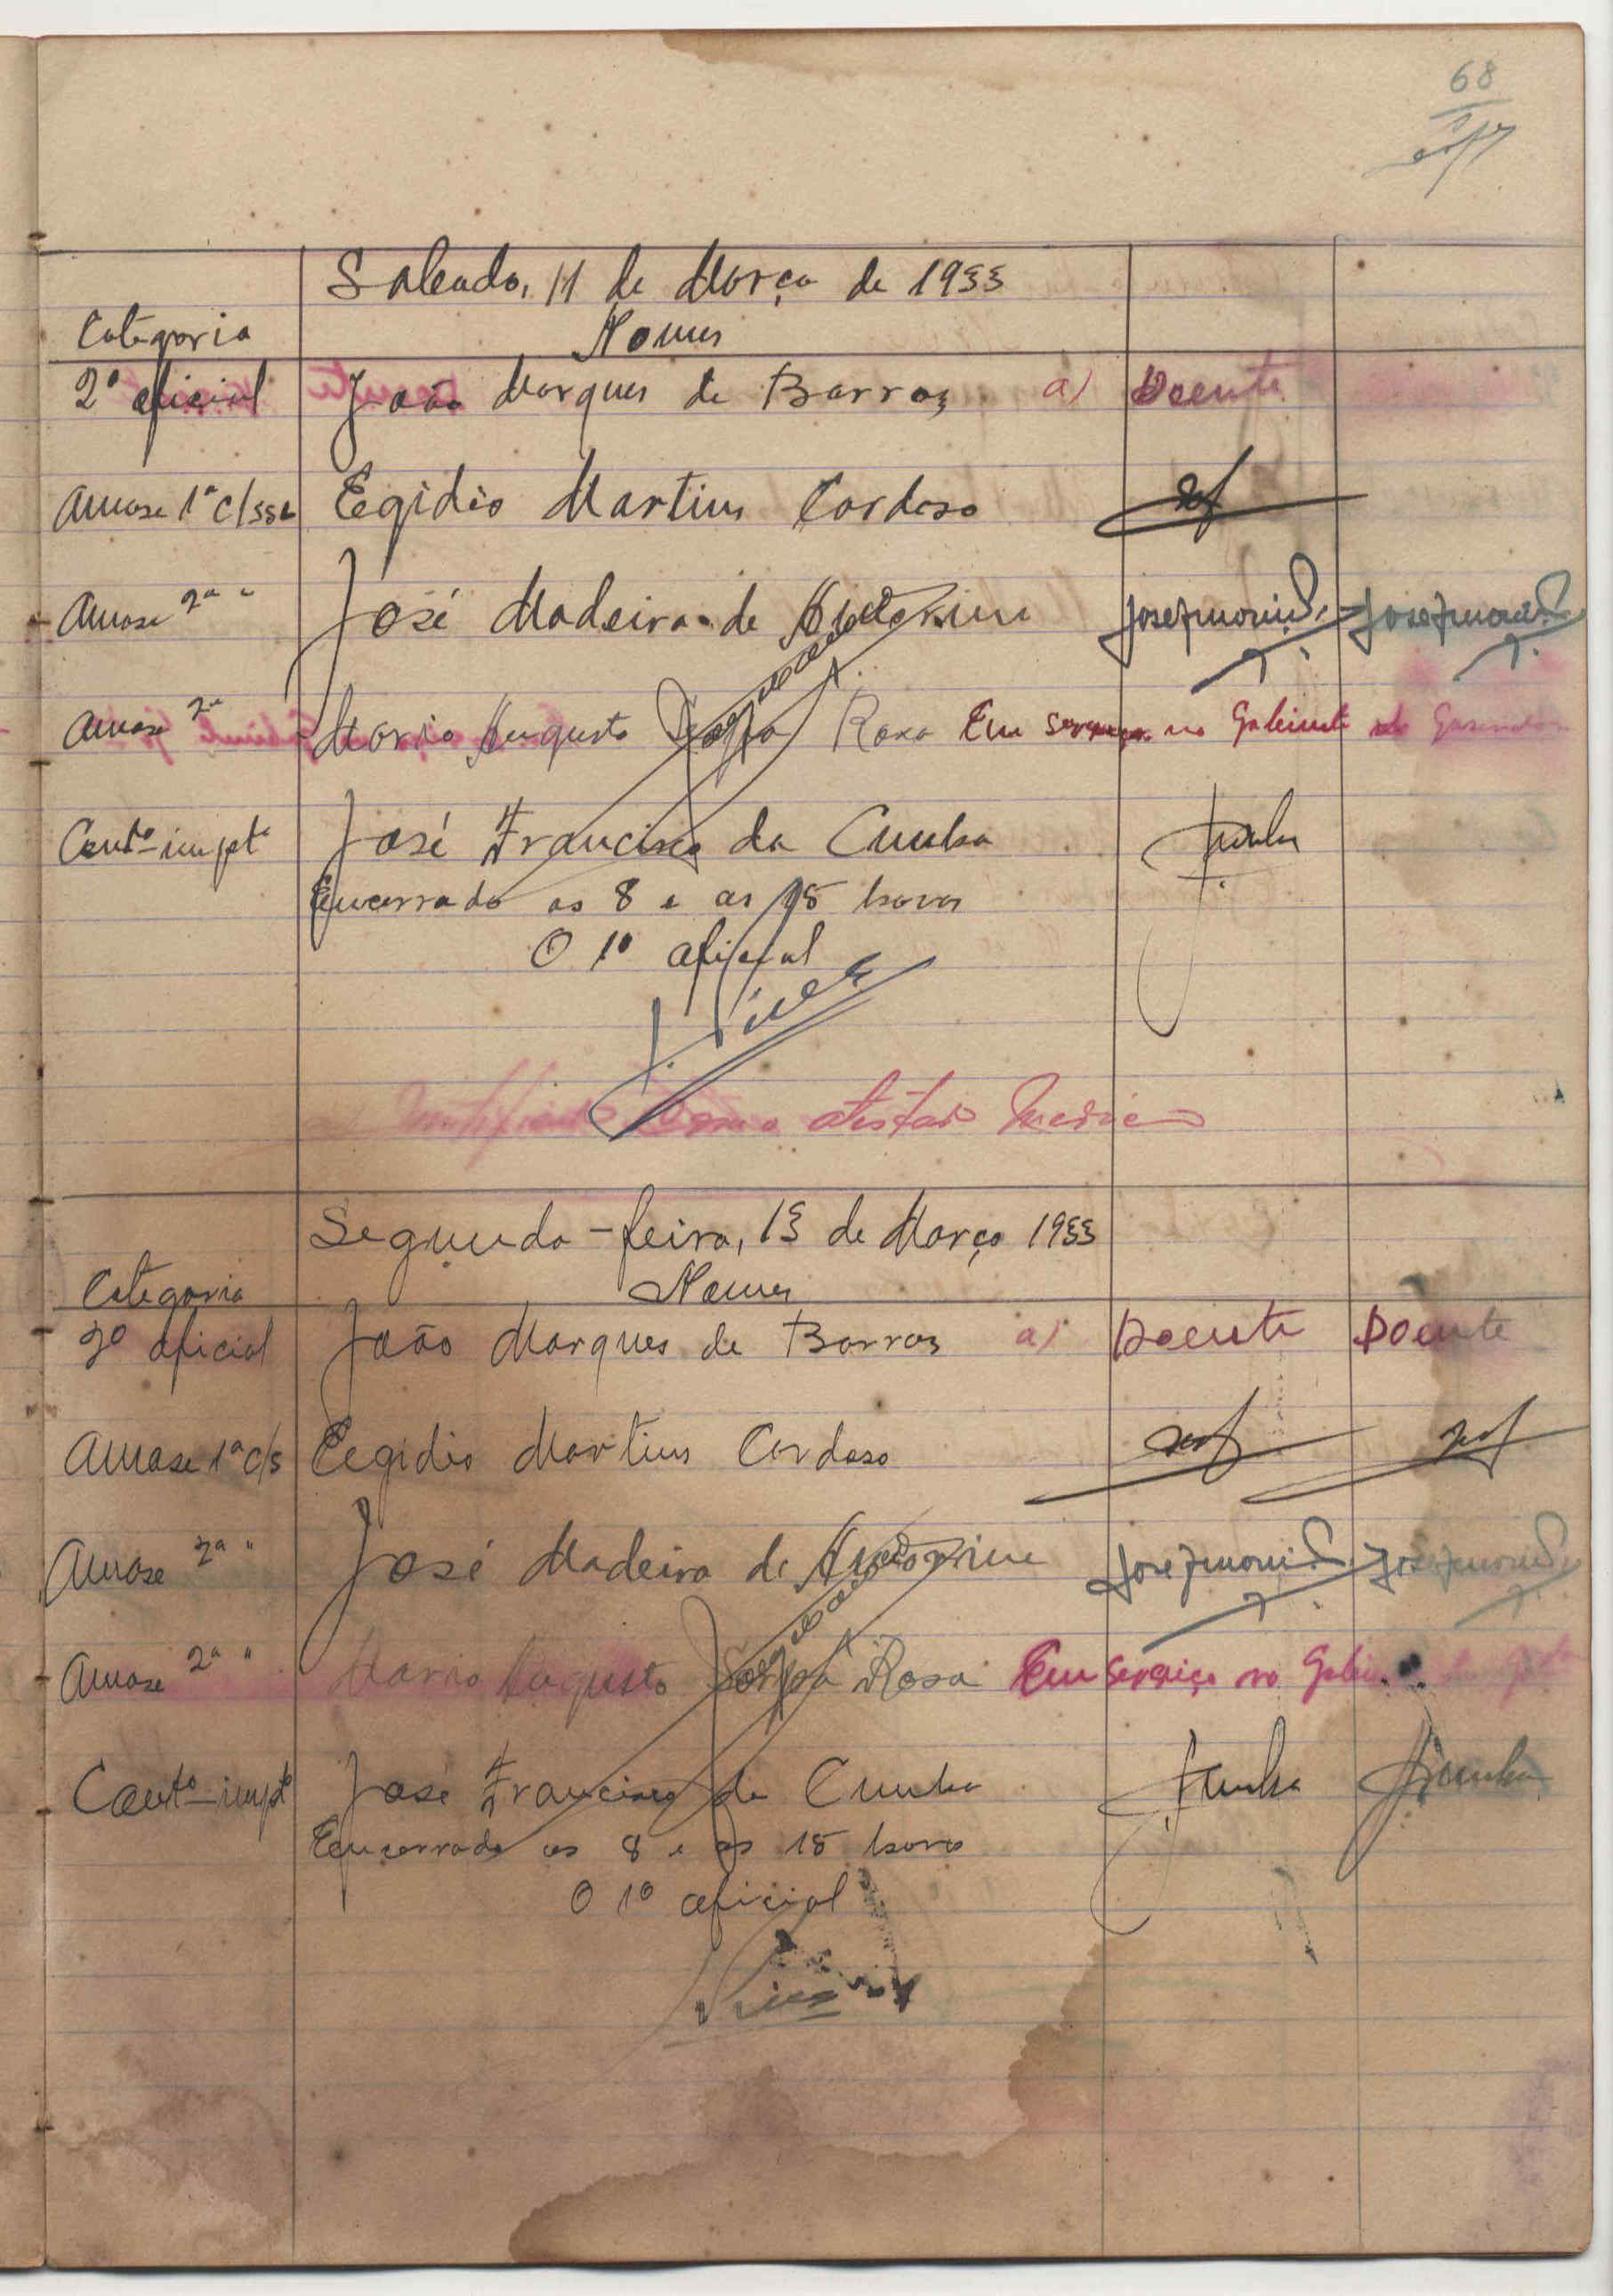 68
Sabado, 11 de Março de 1933
Categoria Nomes
2º oficial João Marques de Barros a) Doente
Amase 1ª c/sse Egidio Martins Cardoso
Amase 2ª " José Madeira de
Amase 2ª Mario Augusto Rosa Em serviço no Gabinete do
Contº impt José Francisco da Cunha Cunha
Encerrado as 8 e as 15 horas
O 1º oficial
atestado medico
Segunda-feira, 13 de Março 1933
Categoria Nomes
2º oficial João Marques de Barros a) Doente Doente
Amase 1ª c/s Egidio Martins Cardoso
Amase 2ª " José Madeira de
Amase 2ª " Mario Augusto Rosa Em serviço no
Contº impt José Francisco da Cunha Cunha Cunha
Encerrado as 8 e as 15 horas
O 1º oficial